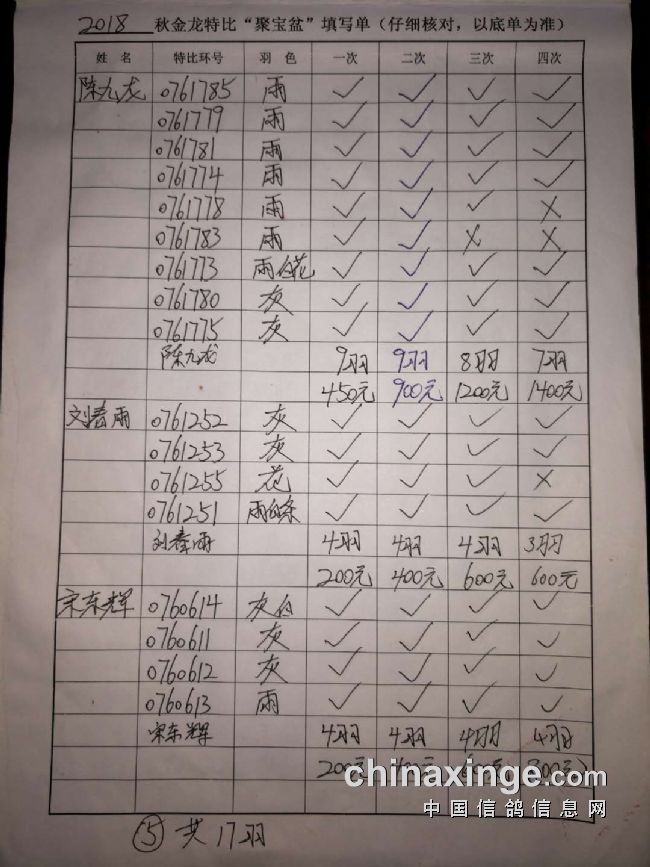 2018 秋金龙特比“聚宝盆”填写单（仔细核对，以底单为准）
姓 名 特比环号 羽 色 一次 二次 三次 四次
陈九龙 0761785 雨 ✓ ✓ ✓ ✓
0761779 雨 ✓ ✓ ✓ ✓
0761781 雨 ✓ ✓ ✓ ✓
0761774 雨 ✓ ✓ ✓ ✓
0761778 雨 ✓ ✓ ✓ ×
0761783 雨 ✓ ✓ × ×
0761773 雨白花 ✓ ✓ ✓ ✓
0761780 灰 ✓ ✓ ✓ ✓
0761775 灰 ✓ ✓ ✓ ✓
陈九龙 9羽 9羽 8羽 7羽
450元 900元 1200元 1400元
刘春雨 0761252 灰 ✓ ✓ ✓ ✓
0761253 灰 ✓ ✓ ✓ ✓
0761255 花 ✓ ✓ ✓ ×
0761251 雨白条 ✓ ✓ ✓ ✓
刘春雨 4羽 4羽 4羽 3羽
200元 400元 600元 600元
宋东辉 0760614 灰白 ✓ ✓ ✓ ✓
0760611 灰 ✓ ✓ ✓ ✓
0760612 灰 ✓ ✓ ✓ ✓
0760613 雨 ✓ ✓ ✓ ✓
宋东辉 4羽 4羽 4羽 4羽
200元
chinaxinge.com
中国信鸽信息网
⑤ 共17羽